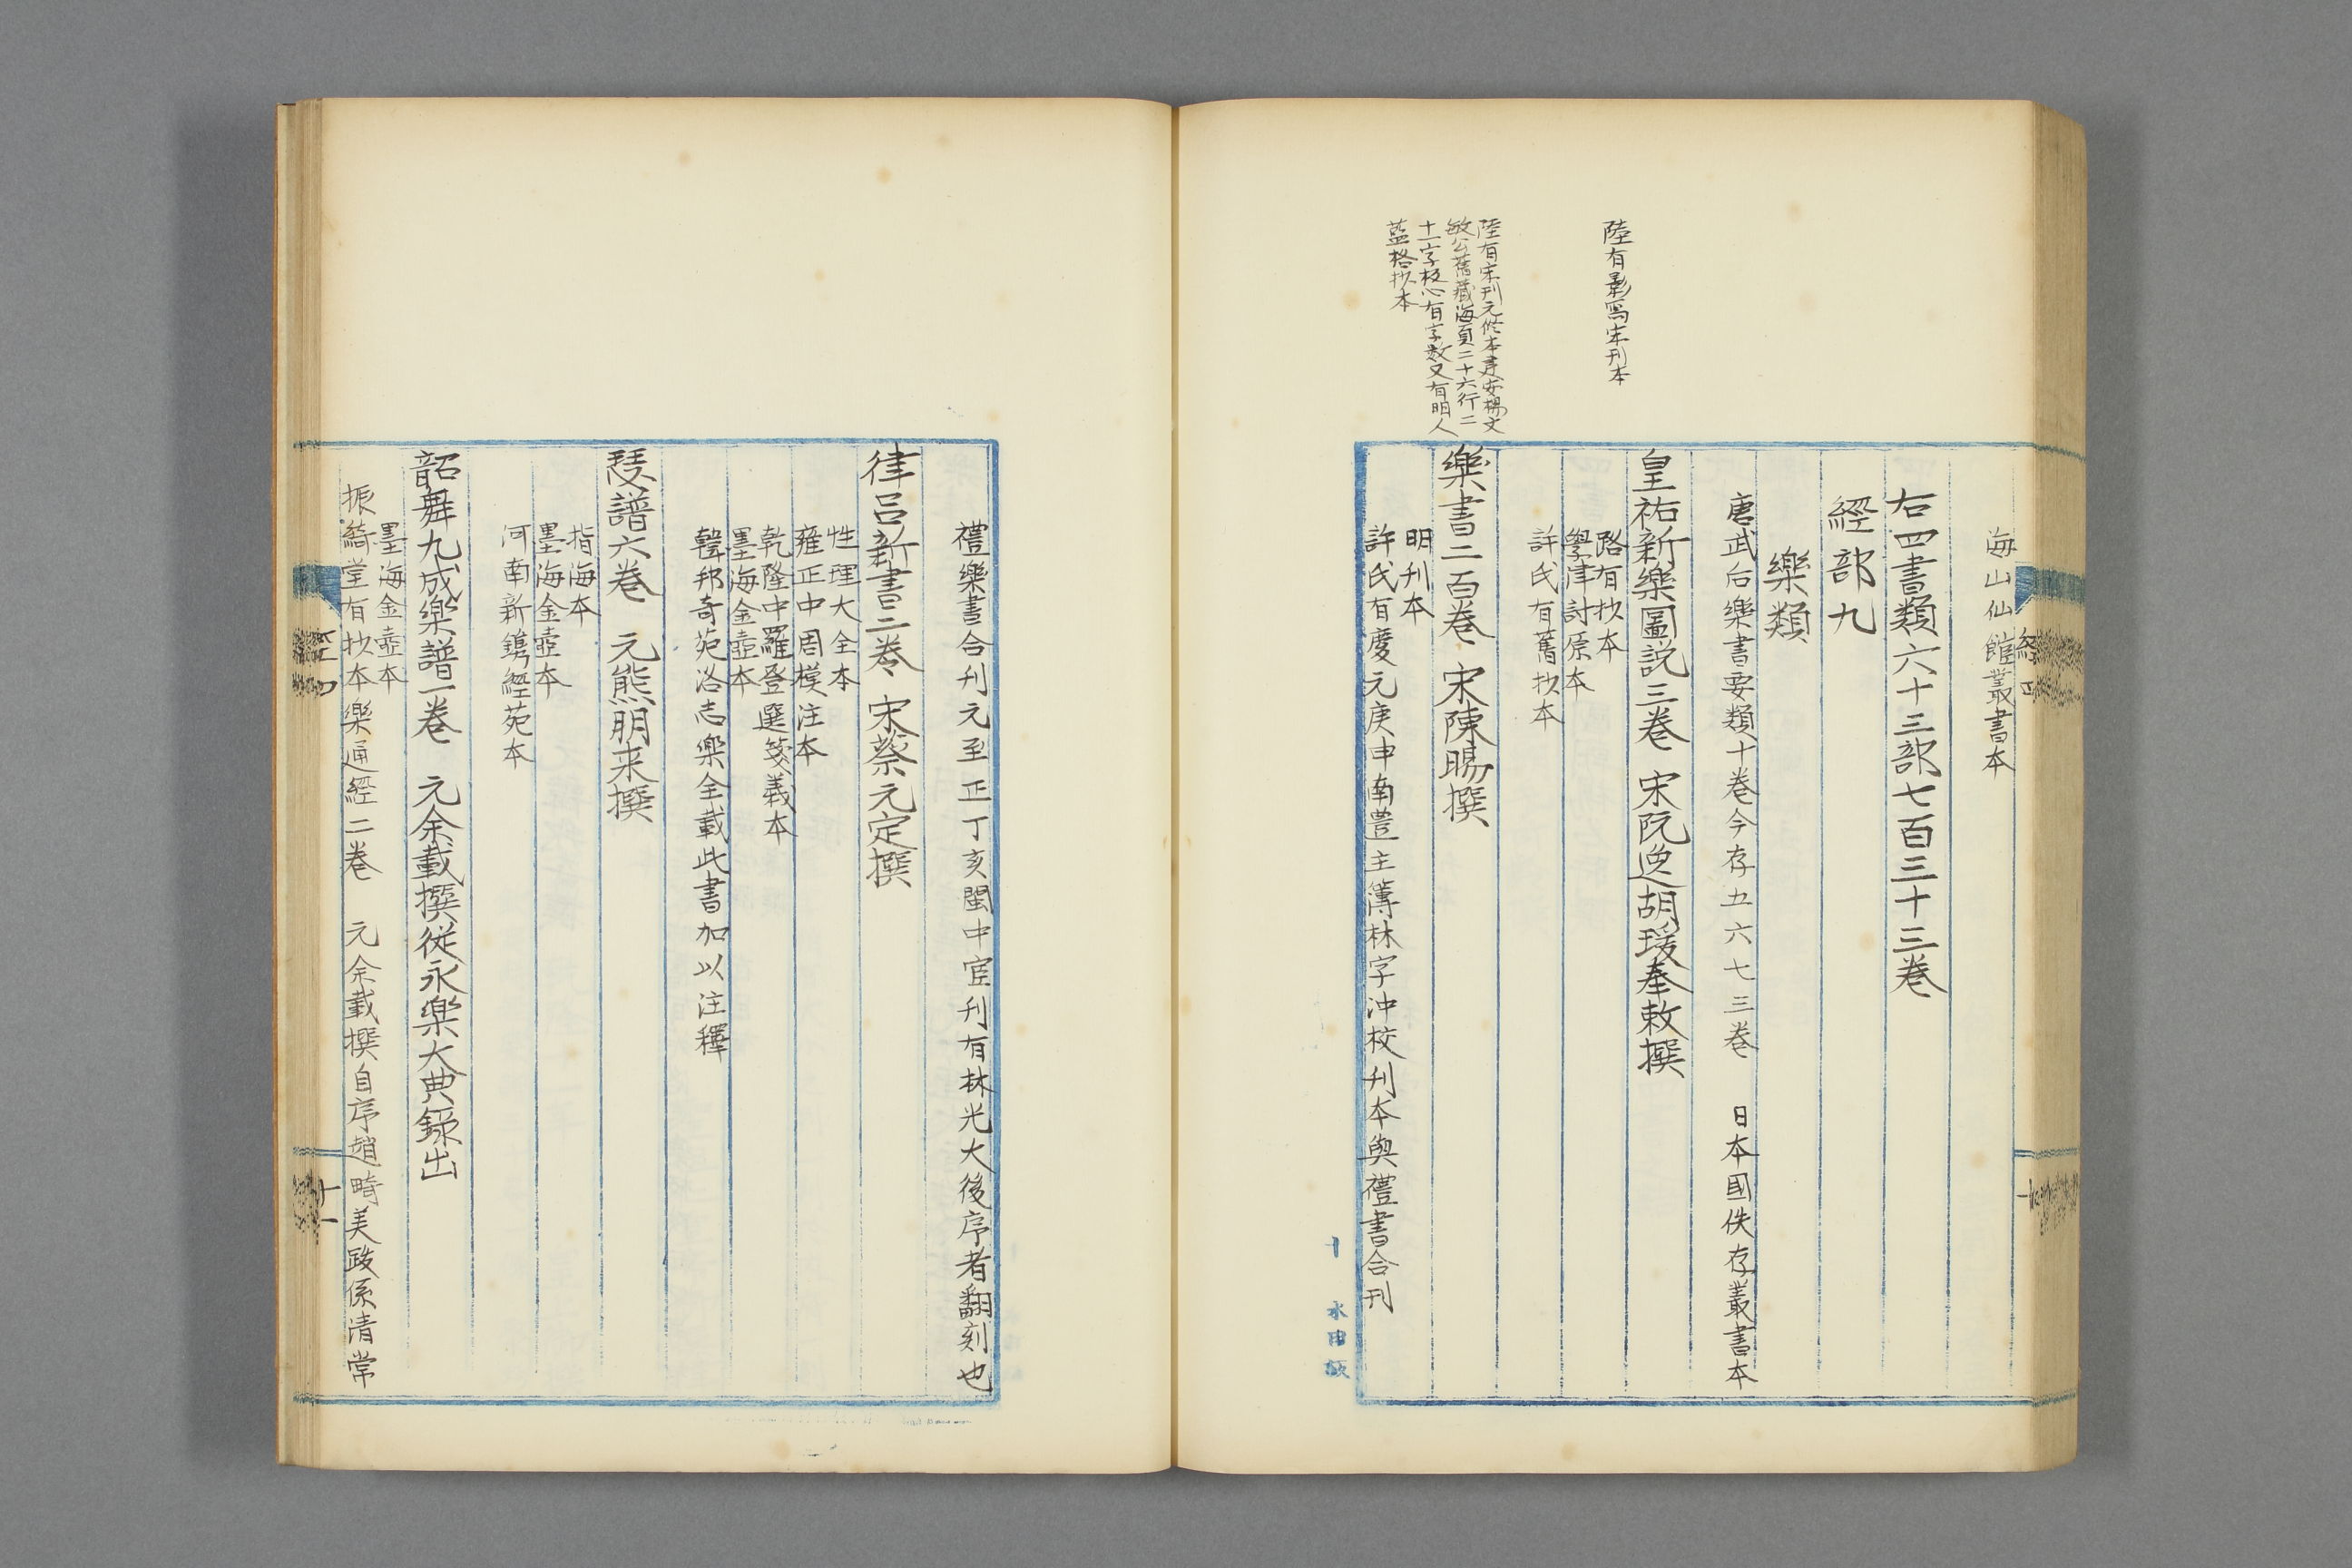 海山仙館叢書本
右四書類六十三部七百三十三卷
經部九
樂類
唐武后樂書要類十卷今存五六七三卷 日本國佚存叢書本
陸有影寫宋刊本
皇祐新樂圖説三卷 宋阮逸胡瑗奉敕撰
路有抄本
學津討原本
許氏有舊抄本
陸有宋刊元修本建安楊文
敏公舊藏海頁二十六行二
十一字板心有字數又有明人
藍格抄本
樂書二百卷 宋陳暘撰
明刊本
許氏有慶元庚申南豊主簿林字沖校刊本與禮書合刊
經四
十
禮樂書合刊元至正丁亥閩中宦刊有林光大後序者翻刻也
律呂新書二卷 宋蔡元定撰
性理大全本
雍正中周模注本
乾隆中羅登選箋義本
墨海金壺本
韓邦奇苑洛志樂全載此書加以注釋
瑟譜六卷 元熊朋来撰
指海本
墨海金壺本
河南新鐫經苑本
韶舞九成樂譜一卷 元余載撰從永樂大典録出
墨海金壺本
振綺堂有抄本樂通經二卷 元余載撰自序趙畸美跋係清常
經四
十一